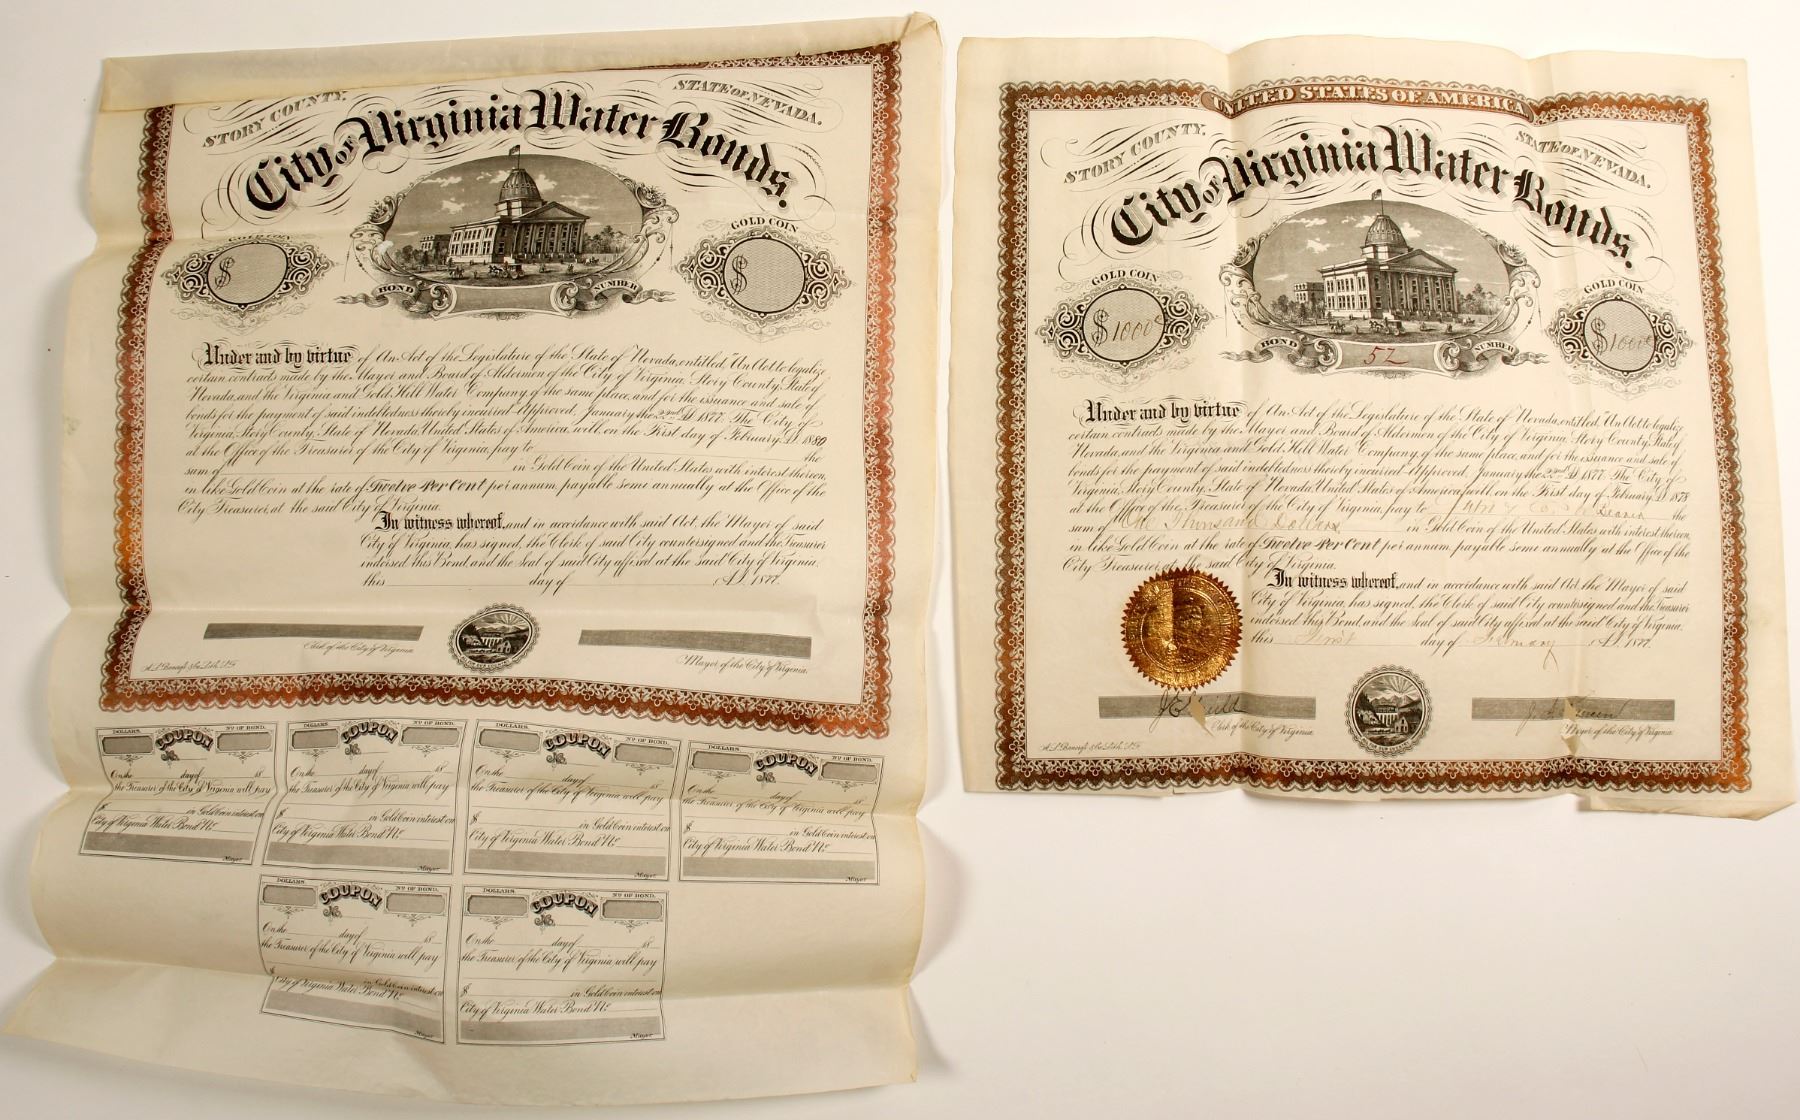 STORY COUNTY.
STATE OF NEVADA.
City of Virginia Water Bonds.
GOLD COIN
GOLD COIN
$
$
BOND NUMBER
Under and by virtue of An Act of the Legislature of the State of Nevada, entitled, "An Act to legalize
certain contracts made by the Mayor and Board of Aldermen of the City of Virginia, Story County, State of
Nevada, and the Virginia and Gold Hill Water Company, of the same place, and for the issuance and sale of
bonds for the payment of said indebtedness thereby incurred Approved, January the 22nd A.D. 1877. The City of
Virginia, Story County, State of Nevada, United States of America, will, on the First day of February A.D. 1880
at the Office of the Treasurer of the City of Virginia, pay to the
sum of in Gold Coin of the United States with interest thereon,
in like Gold Coin at the rate of Twelve Per Cent per annum, payable semi annually at the Office of the
City Treasurer, at the said City of Virginia.
In witness whereof, and in accordance with said Act, the Mayor of said
City of Virginia, has signed, the Clerk of said City countersigned and the Treasurer
indorsed this Bond, and the Seal of said City affixed at the said City of Virginia.
this day of A.D. 1877.
Clerk of the City of Virginia
Mayor of the City of Virginia.
DOLLARS. COUPON No. OF BOND.
No.
On the day of 18
the Treasurer of the City of Virginia will pay
$ in Gold Coin interest on
City of Virginia Water Bond No.
Mayor
DOLLARS. COUPON No. OF BOND.
No.
On the day of 18
the Treasurer of the City of Virginia will pay
$ in Gold Coin interest on
City of Virginia Water Bond No.
Mayor
DOLLARS. COUPON No. OF BOND.
No.
On the day of 18
the Treasurer of the City of Virginia will pay
$ in Gold Coin interest on
City of Virginia Water Bond No.
Mayor
DOLLARS. COUPON No. OF BOND.
No.
On the day of 18
the Treasurer of the City of Virginia will pay
$ in Gold Coin interest on
City of Virginia Water Bond No.
Mayor
DOLLARS. COUPON No. OF BOND.
No.
On the day of 18
the Treasurer of the City of Virginia will pay
$ in Gold Coin interest on
City of Virginia Water Bond No.
Mayor
DOLLARS. COUPON No. OF BOND.
No.
On the day of 18
the Treasurer of the City of Virginia will pay
$ in Gold Coin interest on
City of Virginia Water Bond No.
Mayor
UNITED STATES OF AMERICA
STORY COUNTY.
STATE OF NEVADA.
City of Virginia Water Bonds.
GOLD COIN
GOLD COIN
$1000
$1000
BOND 52 NUMBER
Under and by virtue of An Act of the Legislature of the State of Nevada, entitled, "An Act to legalize
certain contracts made by the Mayor and Board of Aldermen of the City of Virginia, Story County, State of
Nevada, and the Virginia and Gold Hill Water Company, of the same place, and for the issuance and sale of
bonds for the payment of said indebtedness thereby incurred Approved, January the 22nd A.D. 1877. The City of
Virginia, Story County, State of Nevada, United States of America, will, on the First day of February A.D. 1878
at the Office of the Treasurer of the City of Virginia, pay to the
sum of One Thousand Dollars in Gold Coin of the United States with interest thereon,
in like Gold Coin at the rate of Twelve Per Cent per annum, payable semi annually at the Office of the
City Treasurer, at the said City of Virginia.
In witness whereof, and in accordance with said Act, the Mayor of said
City of Virginia, has signed, the Clerk of said City countersigned and the Treasurer
indorsed this Bond, and the Seal of said City affixed at the said City of Virginia.
this First day of February A.D. 1877.
Clerk of the City of Virginia
Mayor of the City of Virginia